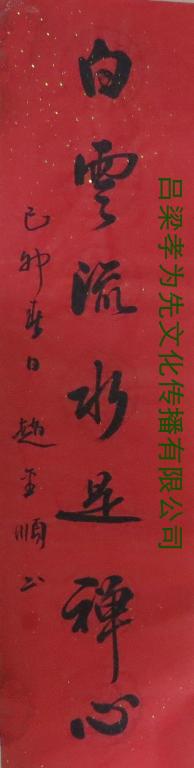 白雲流水是禪心
己卯春日趙金順书
吕梁孝为先文化传播有限公司